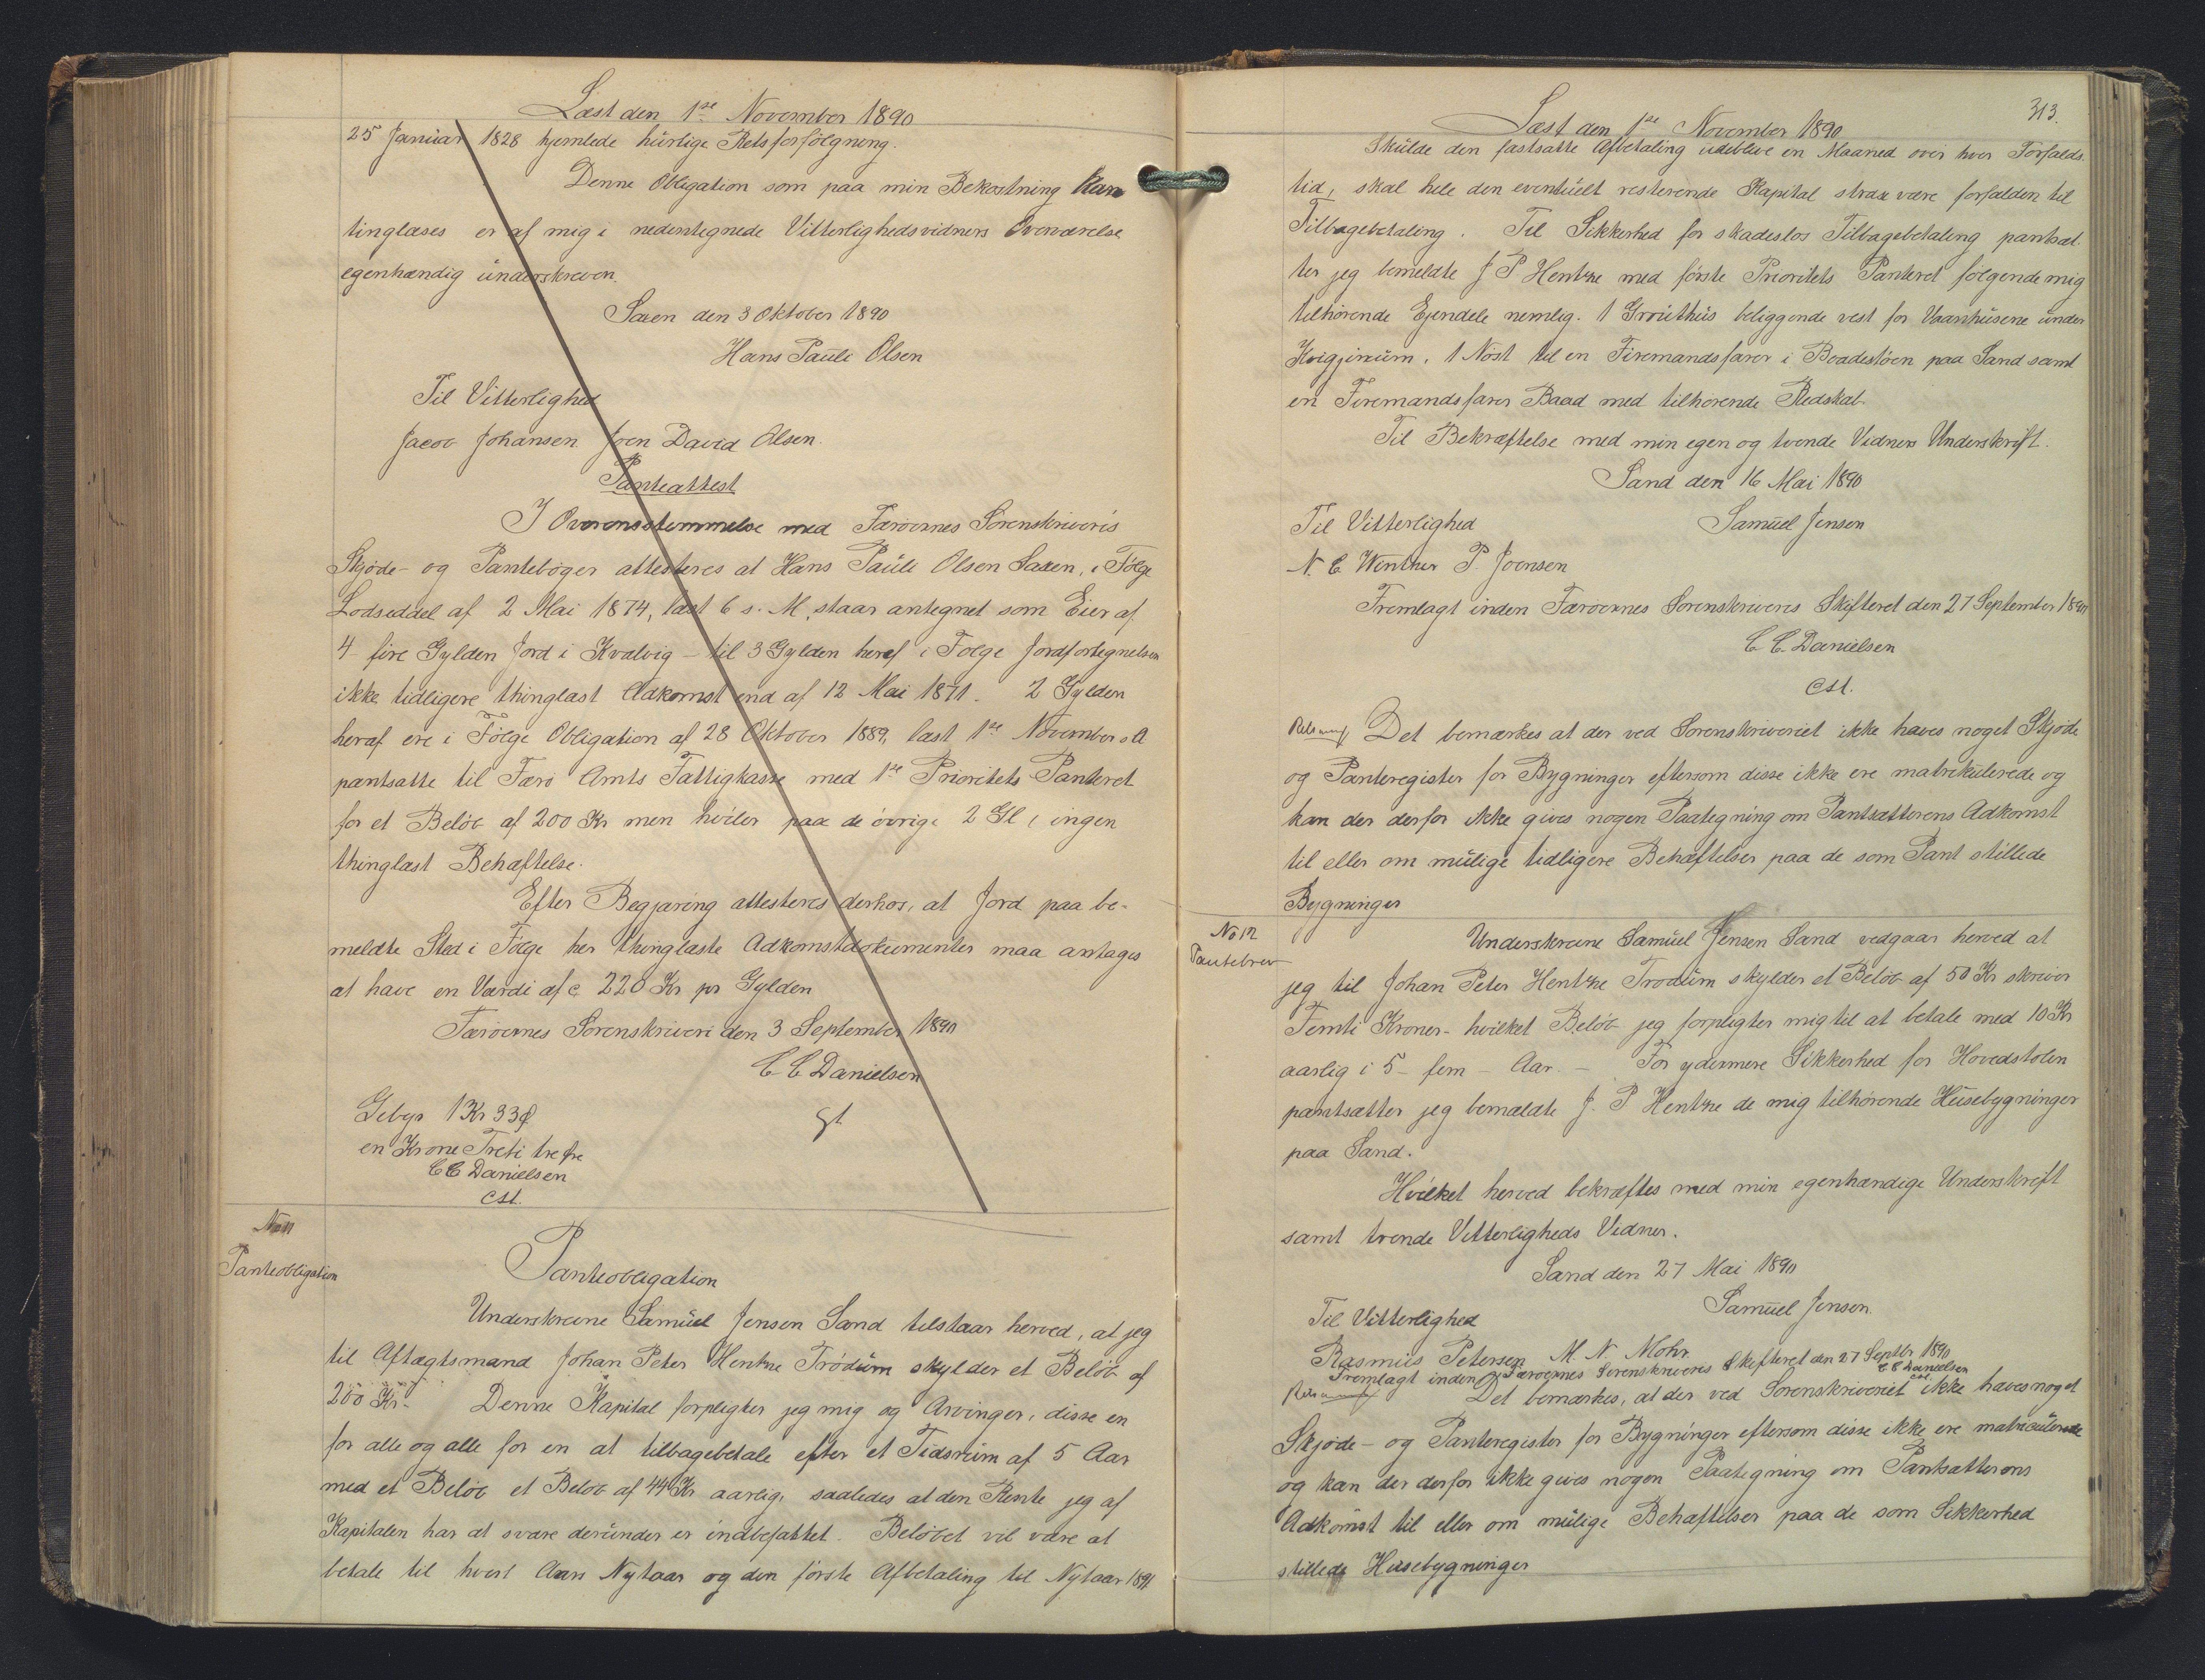 Læst den 1ste November 1890
25 Januar 1828 hjemlede hurtige Retsforfølgning.
Denne Obligation som paa min Bekostning kan
tinglæses er af mig i nedentegnede Vitterlighedsvidners Overværelse
egenhændig underskreven.
Saxen den 3 Oktober 1890
Hans Pauli Olsen
Til Vitterlighed
Jacob Johansen Joen David Olsen.
Panteattest
I Overensstemmelse med Færøernes Sorenskriveris
Skjøde- og Pantebøger attesteres at Hans Pauli Olsen Saxen, i Følge
Lodseddel af 2 Mai 1874, læst 6 s. M. staar antegnet som Eier af
4 fire Gylden Jord i Kvalvig - til 3 Gylden heraf i Følge Jordfortegnelsen
ikke tidligere thinglæst Adkomst end af 12 Mai 1871. 2 Gylden
heraf ere i Følge Obligation af 28 Oktober 1889, læst 1ste November s A
pantsatte til Færø Amts Fattigkasse med 1ste Prioritets Panteret
for et Beløb af 200 Kr men hviler paa de øvrige 2 Gl, ingen
thinglæst Behæftelse.
Efter Begjæring attesteres derhos, at Jord paa be-
meldte Sted i Følge her thinglæste Adkomstdokumenter maa antages
at have en Værdi af c 220 Kr pr Gylden
Færøernes Sorenskriveri den 3 September 1890
C C Danielsen
cst
Gebyr 1 Kr 33 Ø
en Krone Treti tre Øre
C C Danielsen
cst.
No 11
Panteobligation
Panteobligation
Underskrevne Samuel Jensen Sand tilstaar herved, at jeg
til Aftægtsmand Johan Peter Hentze Trødum skylder et Beløb af
200 Kr. Denne Kapital forpligter jeg mig og Arvinger, disse en
for alle og alle for en at tilbagebetale efter et Tidsrum af 5 Aar
med et Beløb et Beløb af 44 Kr aarlig, saaledes at den Rente jeg af
Kapitalen har at svare derunder er indbefattet. Beløbet vil være at
betale til hvert Aars Nytaar og den første Afbetaling til Nytaar 1891.
313.
Læst den 1ste November 1890
Skulde den fastsatte Afbetaling udeblive en Maaned over hver Forfalds
tid, skal hele den eventuelt resterende Kapital strax være forfalden til
Tilbagebetaling. Til Sikkerhed for skadesløs Tilbagebetaling pantsæt
ter jeg bemeldte J P Hentze med første Prioritets Panteret følgende mig
tilhørende Ejendele nemlig. 1 Grouthus beliggende vest for Vaanhusene under
Kvigjinum, 1 Nöst til en Firemandsfarer i Baadestöen paa Sand samt
en Firemandsfarer Baad med tilhørende Redskab
Til Bekræftelse med min egen og tvende Vidners Underskrift.
Sand den 16 Mai 1890
Til Vitterlighed Samuel Jensen
N. C. Wenther P. Joensen
Fremlagt inden Færøernes Sorenskriveris Skifteret den 27 September 1890
C C. Danielsen
cst.
Det bemærkes at der ved Sorenskriveriet ikke haves noget Skjøde
og Panteregister for Bygninger eftersom disse ikke ere matrikulerede og
kan der derfor ikke gives nogen Paategning om Pantsætterens Adkomst
til eller om mulige tidligere Behæftelser paa de som Pant stillede
Bygninger
No 12
Pantebrev
Underskrevne Samuel Jensen Sand vedgaar herved at
jeg til Johan Peter Hentze Trødum skylder et Beløb af 50 Kr skriver
Femti Kroner - hvilket Beløb jeg forpligter mig til at betale med 10 Kr
aarlig i 5 - fem - Aar. - For ydermere Sikkerhed for Hovedstolen
pantsætter jeg bemældte J. P Hentze de mig tilhørende Husebygninger
paa Sand.
Hvilket herved bekræftes med min egenhændige Underskrift
samt tvende Vitterligheds Vidner.
Sand den 27 Mai 1890
Til Vitterlighed Samuel Jensen.
Rasmus Petersen M. N. Mohr
Fremlagt inden Færøernes Sorenskriveris Skifteret den 27 Septbr 1890
C C Danielsen
cst.
Det bemærkes, at der ved Sorenskriveriet ikke haves noget
Skjøde- og Panteregister for Bygninger eftersom disse ikke ere matriculerede
og kan der derfor ikke gives nogen Paategning om Pantsætterens
Adkomst til eller om mulige Behæftelser paa de som Sikkerhed
stillede Husebygninger